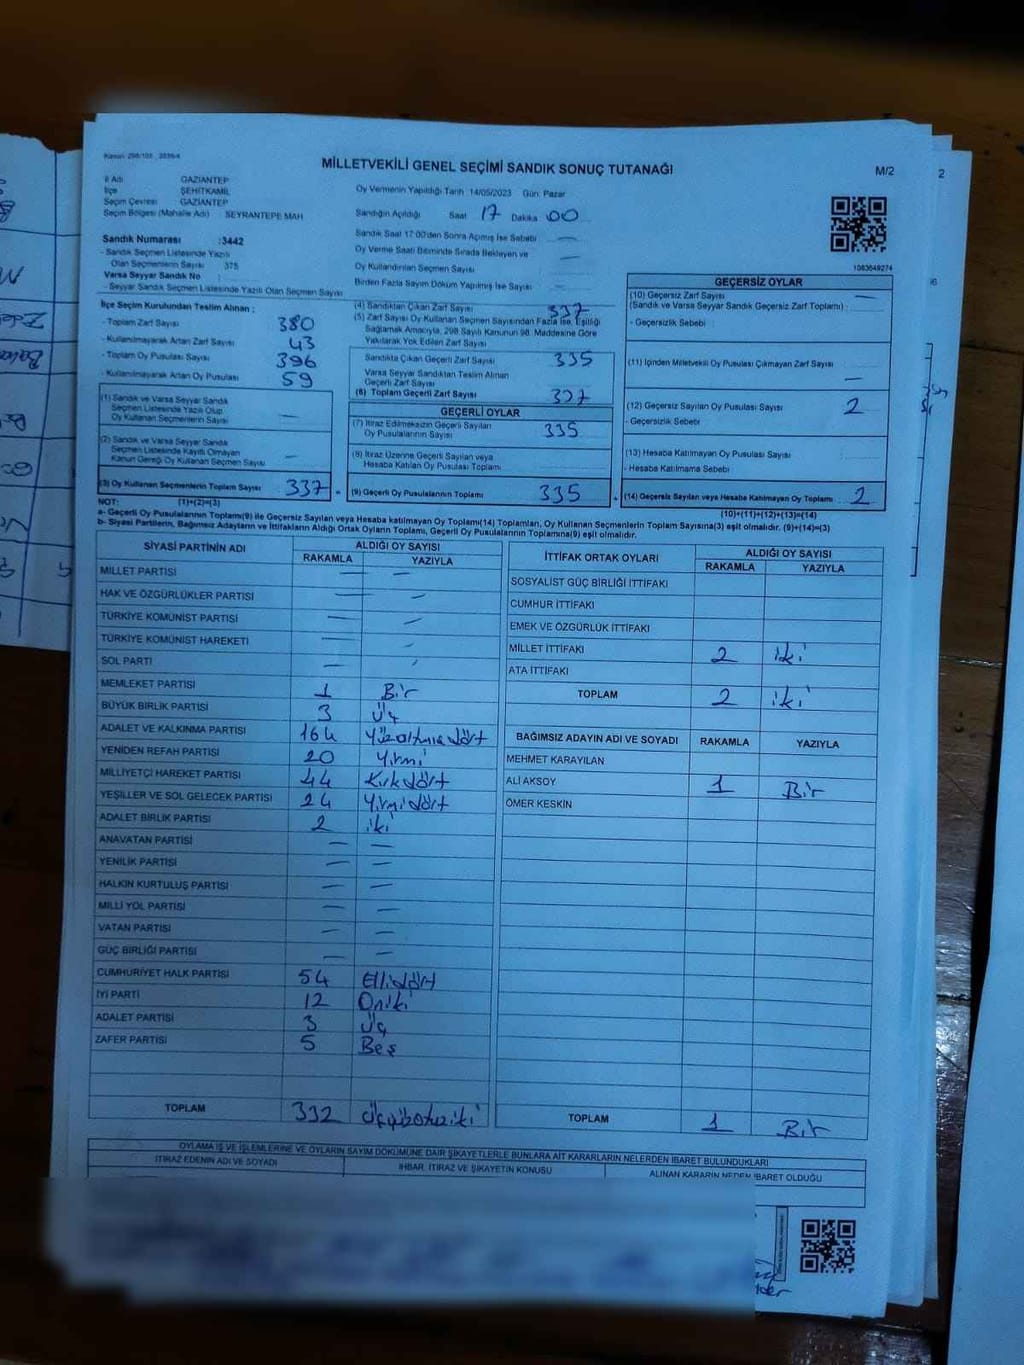 Kanun: 298/105 , 2839/4
MİLLETVEKİLİ GENEL SEÇİMİ SANDIK SONUÇ TUTANAĞI
M/2
2
İl Adı GAZİANTEP
İlçe ŞEHİTKAMİL
Seçim Çevresi GAZİANTEP
Seçim Bölgesi (Mahalle Adı) : SEYRANTEPE MAH
Oy Vermenin Yapıldığı Tarih 14/05/2023 Gün: Pazar
Sandığın Açıldığı Saat 17 Dakika 00
Sandık Saat 17:00'den Sonra Açılmış İse Sebebi : —
Oy Verme Saati Bitiminde Sırada Bekleyen ve
Oy Kullandırılan Seçmen Sayısı —
Birden Fazla Sayım Döküm Yapılmış İse Sayısı :
Sandık Numarası :3442
- Sandık Seçmen Listesinde Yazılı
Olan Seçmenlerin Sayısı 375
Varsa Seyyar Sandık No :
- Seyyar Sandık Seçmen Listesinde Yazılı Olan Seçmen Sayısı
1083549274
İlçe Seçim Kurulundan Teslim Alınan :
- Toplam Zarf Sayısı 380
- Kullanılmayarak Artan Zarf Sayısı 43
- Toplam Oy Pusulası Sayısı 396
- Kullanılmayarak Artan Oy Pusulası 59
(1) Sandık ve Varsa Seyyar Sandık
Seçmen Listesinde Yazılı Olup
Oy Kullanan Seçmenlerin Sayısı —
(2) Sandık ve Varsa Seyyar Sandık
Seçmen Listesinde Kayıtlı Olmayan
Kanun Gereği Oy Kullanan Seçmen Sayısı —
(3) Oy Kullanan Seçmenlerin Toplam Sayısı 337 =
(4) Sandıktan Çıkan Zarf Sayısı 337
(5) Zarf Sayısı Oy Kullanan Seçmen Sayısından Fazla İse, Eşitliği
Sağlamak Amacıyla, 298 Sayılı Kanunun 98. Maddesine Göre
Yakılarak Yok Edilen Zarf Sayısı
Sandıkta Çıkan Geçerli Zarf Sayısı 335
Varsa Seyyar Sandıktan Teslim Alınan
Geçerli Zarf Sayısı
(6) Toplam Geçerli Zarf Sayısı 337
GEÇERLİ OYLAR
(7) İtiraz Edilmeksizin Geçerli Sayılan
Oy Pusulalarının Sayısı 335
(8) İtiraz Üzerine Geçerli Sayılan veya
Hesaba Katılan Oy Pusulası Toplamı
(9) Geçerli Oy Pusulalarının Toplamı 335 +
GEÇERSİZ OYLAR
(10) Geçersiz Zarf Sayısı —
(Sandık ve Varsa Seyyar Sandık Geçersiz Zarf Toplamı) :
- Geçersizlik Sebebi :
(11) İçinden Milletvekili Oy Pusulası Çıkmayan Zarf Sayısı
—
(12) Geçersiz Sayılan Oy Pusulası Sayısı 2
- Geçersizlik Sebebi
(13) Hesaba Katılmayan Oy Pusulası Sayısı
- Hesaba Katılmama Sebebi
(14) Geçersiz Sayılan veya Hesaba Katılmayan Oy Toplamı 2
NOT: (1)+(2)=(3)
(10)+(11)+(12)+(13)=(14)
a- Geçerli Oy Pusulalarının Toplamı(9) ile Geçersiz Sayılan veya Hesaba katılmayan Oy Toplamı(14) Toplamları, Oy Kullanan Seçmenlerin Toplam Sayısına(3) eşit olmalıdır. (9)+(14)=(3)
b- Siyasi Partilerin, Bağımsız Adayların ve İttifakların Aldığı Ortak Oyların Toplamı, Geçerli Oy Pusulalarının Toplamına(9) eşit olmalıdır.
SİYASİ PARTİNİN ADI ALDIĞI OY SAYISI
RAKAMLA YAZIYLA
MİLLET PARTİSİ — —
HAK VE ÖZGÜRLÜKLER PARTİSİ — —
TÜRKİYE KOMÜNİST PARTİSİ — —
TÜRKİYE KOMÜNİST HAREKETİ — —
SOL PARTİ — —
MEMLEKET PARTİSİ 1 Bir
BÜYÜK BİRLİK PARTİSİ 3 Üç
ADALET VE KALKINMA PARTİSİ 164 Yüzaltmış dört
YENİDEN REFAH PARTİSİ 20 Yirmi
MİLLİYETÇİ HAREKET PARTİSİ 44 Kırkdört
YEŞİLLER VE SOL GELECEK PARTİSİ 24 Yirmidört
ADALET BİRLİK PARTİSİ 2 iki
ANAVATAN PARTİSİ — —
YENİLİK PARTİSİ — —
HALKIN KURTULUŞ PARTİSİ — —
MİLLİ YOL PARTİSİ — —
VATAN PARTİSİ — —
GÜÇ BİRLİĞİ PARTİSİ — —
CUMHURİYET HALK PARTİSİ 54 Ellidört
İYİ PARTİ 12 Oniki
ADALET PARTİSİ 3 Üç
ZAFER PARTİSİ 5 Beş
TOPLAM 332 Üçyüzotuziki
İTTİFAK ORTAK OYLARI ALDIĞI OY SAYISI
RAKAMLA YAZIYLA
SOSYALİST GÜÇ BİRLİĞİ İTTİFAKI
CUMHUR İTTİFAKI
EMEK VE ÖZGÜRLÜK İTTİFAKI
MİLLET İTTİFAKI 2 iki
ATA İTTİFAKI
TOPLAM 2 iki
BAĞIMSIZ ADAYIN ADI VE SOYADI RAKAMLA YAZIYLA
MEHMET KARAYILAN
ALİ AKSOY 1 Bir
ÖMER KESKİN
TOPLAM 1 Bir
OYLAMA İŞ VE İŞLEMLERİNE VE OYLARIN SAYIM DÖKÜMÜNE DAİR ŞİKAYETLERLE BUNLARA AİT KARARLARIN NELERDEN İBARET BULUNDUKLARI
İTİRAZ EDENİN ADI VE SOYADI İHBAR, İTİRAZ VE ŞİKAYETİN KONUSU ALINAN KARARIN NEDEN İBARET OLDUĞU